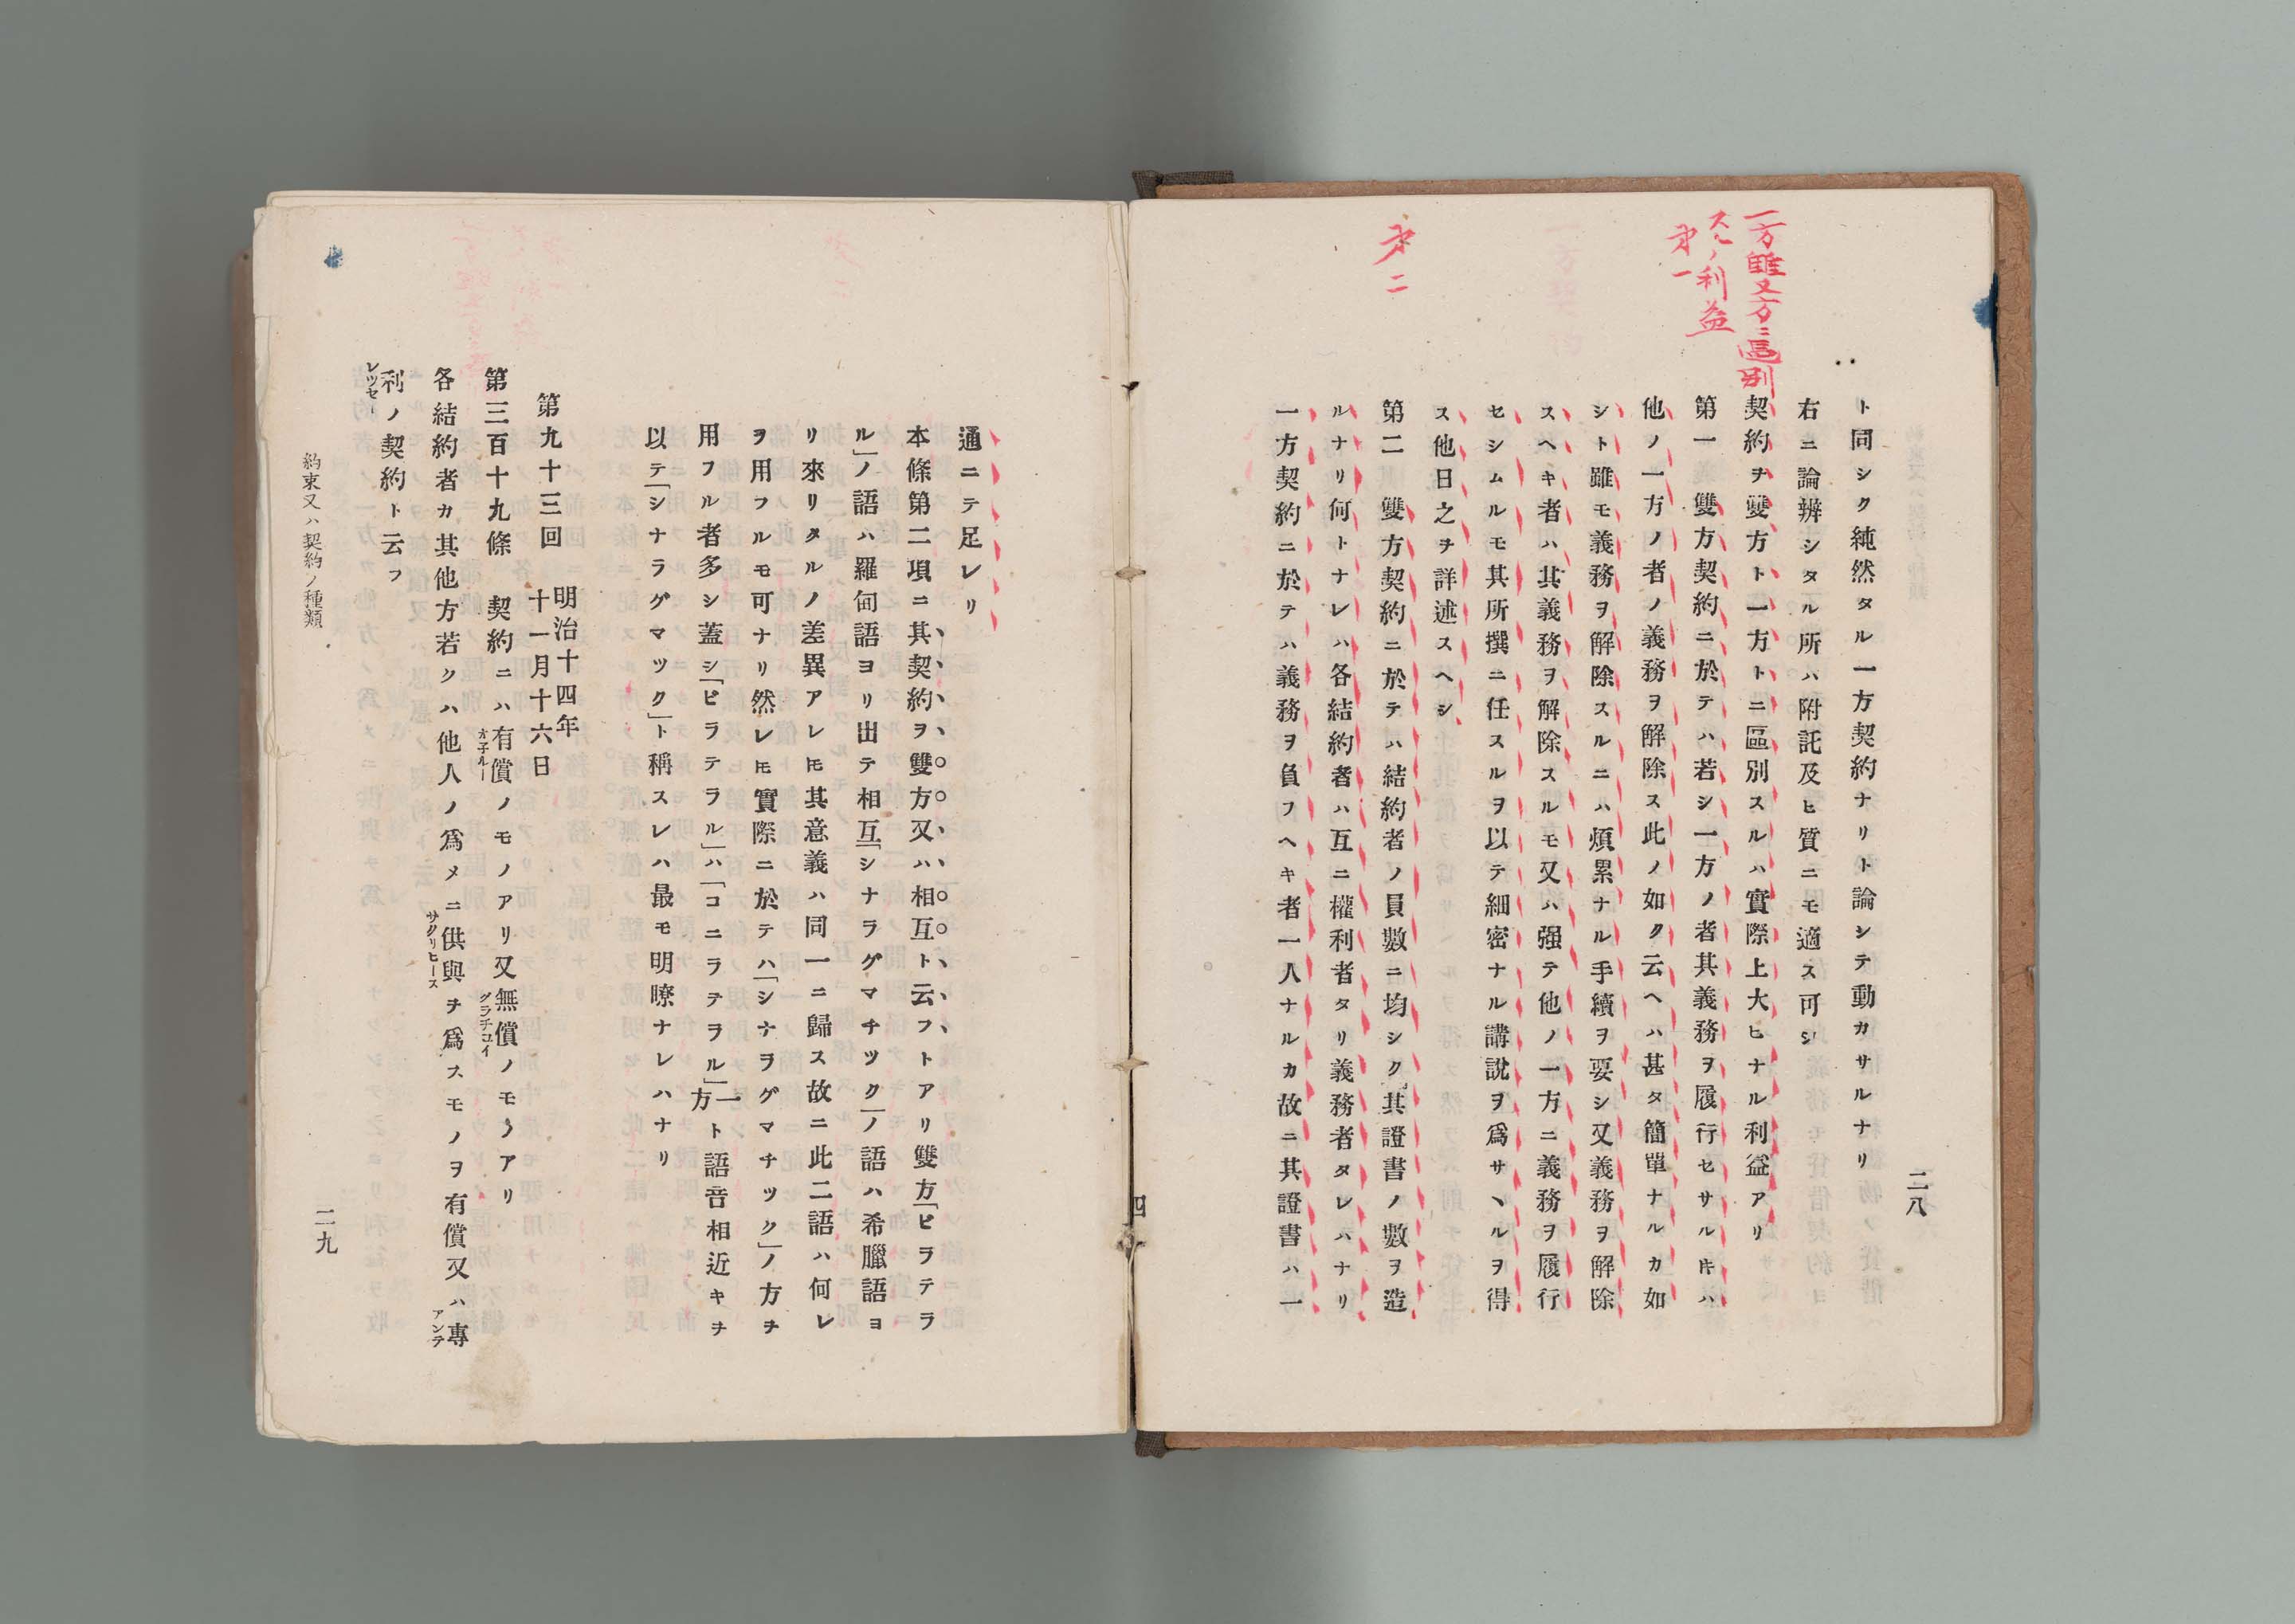 二八
一方雙方ニ區別
スルノ利益
第一
第二
ト同シク純然タル一方契約ナリト論シテ動カサルナリ
右ニ論辨シタル所ハ附託及ヒ質ニモ適ス可シ
契約ヲ雙方ト一方トニ區別スルハ實際上大ヒナル利益アリ
第一 雙方契約ニ於テハ若シ一方ノ者其義務ヲ履行セサルトキハ
他ノ一方ノ者ノ義務ヲ解除ス此ノ如ク云ヘハ甚タ簡單ナルカ如
シト雖モ義務ヲ解除スルニハ煩累ナル手續ヲ要シ又義務ヲ解除
スヘキ者ハ其義務ヲ解除スルモ又ハ强テ他ノ一方ニ義務ヲ履行
セシムルモ其所撰ニ任スルヲ以テ細密ナル講說ヲ爲サヽルヲ得
ス他日之ヲ詳述スヘシ
第二 雙方契約ニ於テハ結約者ノ員數ニ均シク其證書ノ數ヲ造
ルナリ何トナレハ各結約者ハ互ニ權利者タリ義務者タレハナリ
一方契約ニ於テハ義務ヲ負フヘキ者一人ナルカ故ニ其證書ハ一
四
通ニテ足レリ
本條第二項ニ其契約ヲ雙方又ハ相互ト云フトアリ雙方「ビラテラ
ル」ノ語ハ羅甸語ヨリ出テ相互「シナラグマチツク」ノ語ハ希臘語ヨ
リ來リタルノ差異アレトモ其意義ハ同一ニ歸ス故ニ此二語ハ何レ
ヲ用フルモ可ナリ然レトモ實際ニ於テハ「シナヲグマチツク」ノ方ヲ
用フル者多シ蓋シ「ビラテラル」ハ「コニラテヲル」一方ト語音相近キヲ
以テ「シナラグマツク」ト稱スレハ最モ明瞭ナレハナリ
第九十三回 明治十四年十一月十六日
第三百十九條 契約ニハ有償オ子ルーノモノアリ又無償グラチユイノモノアリ
各結約者カ其他方若クハ他人ノ爲メニ供與サクリヒースヲ爲スモノヲ有償又ハ專アンテ
利レツセーノ契約ト云フ
約束又ハ契約ノ種類
二九